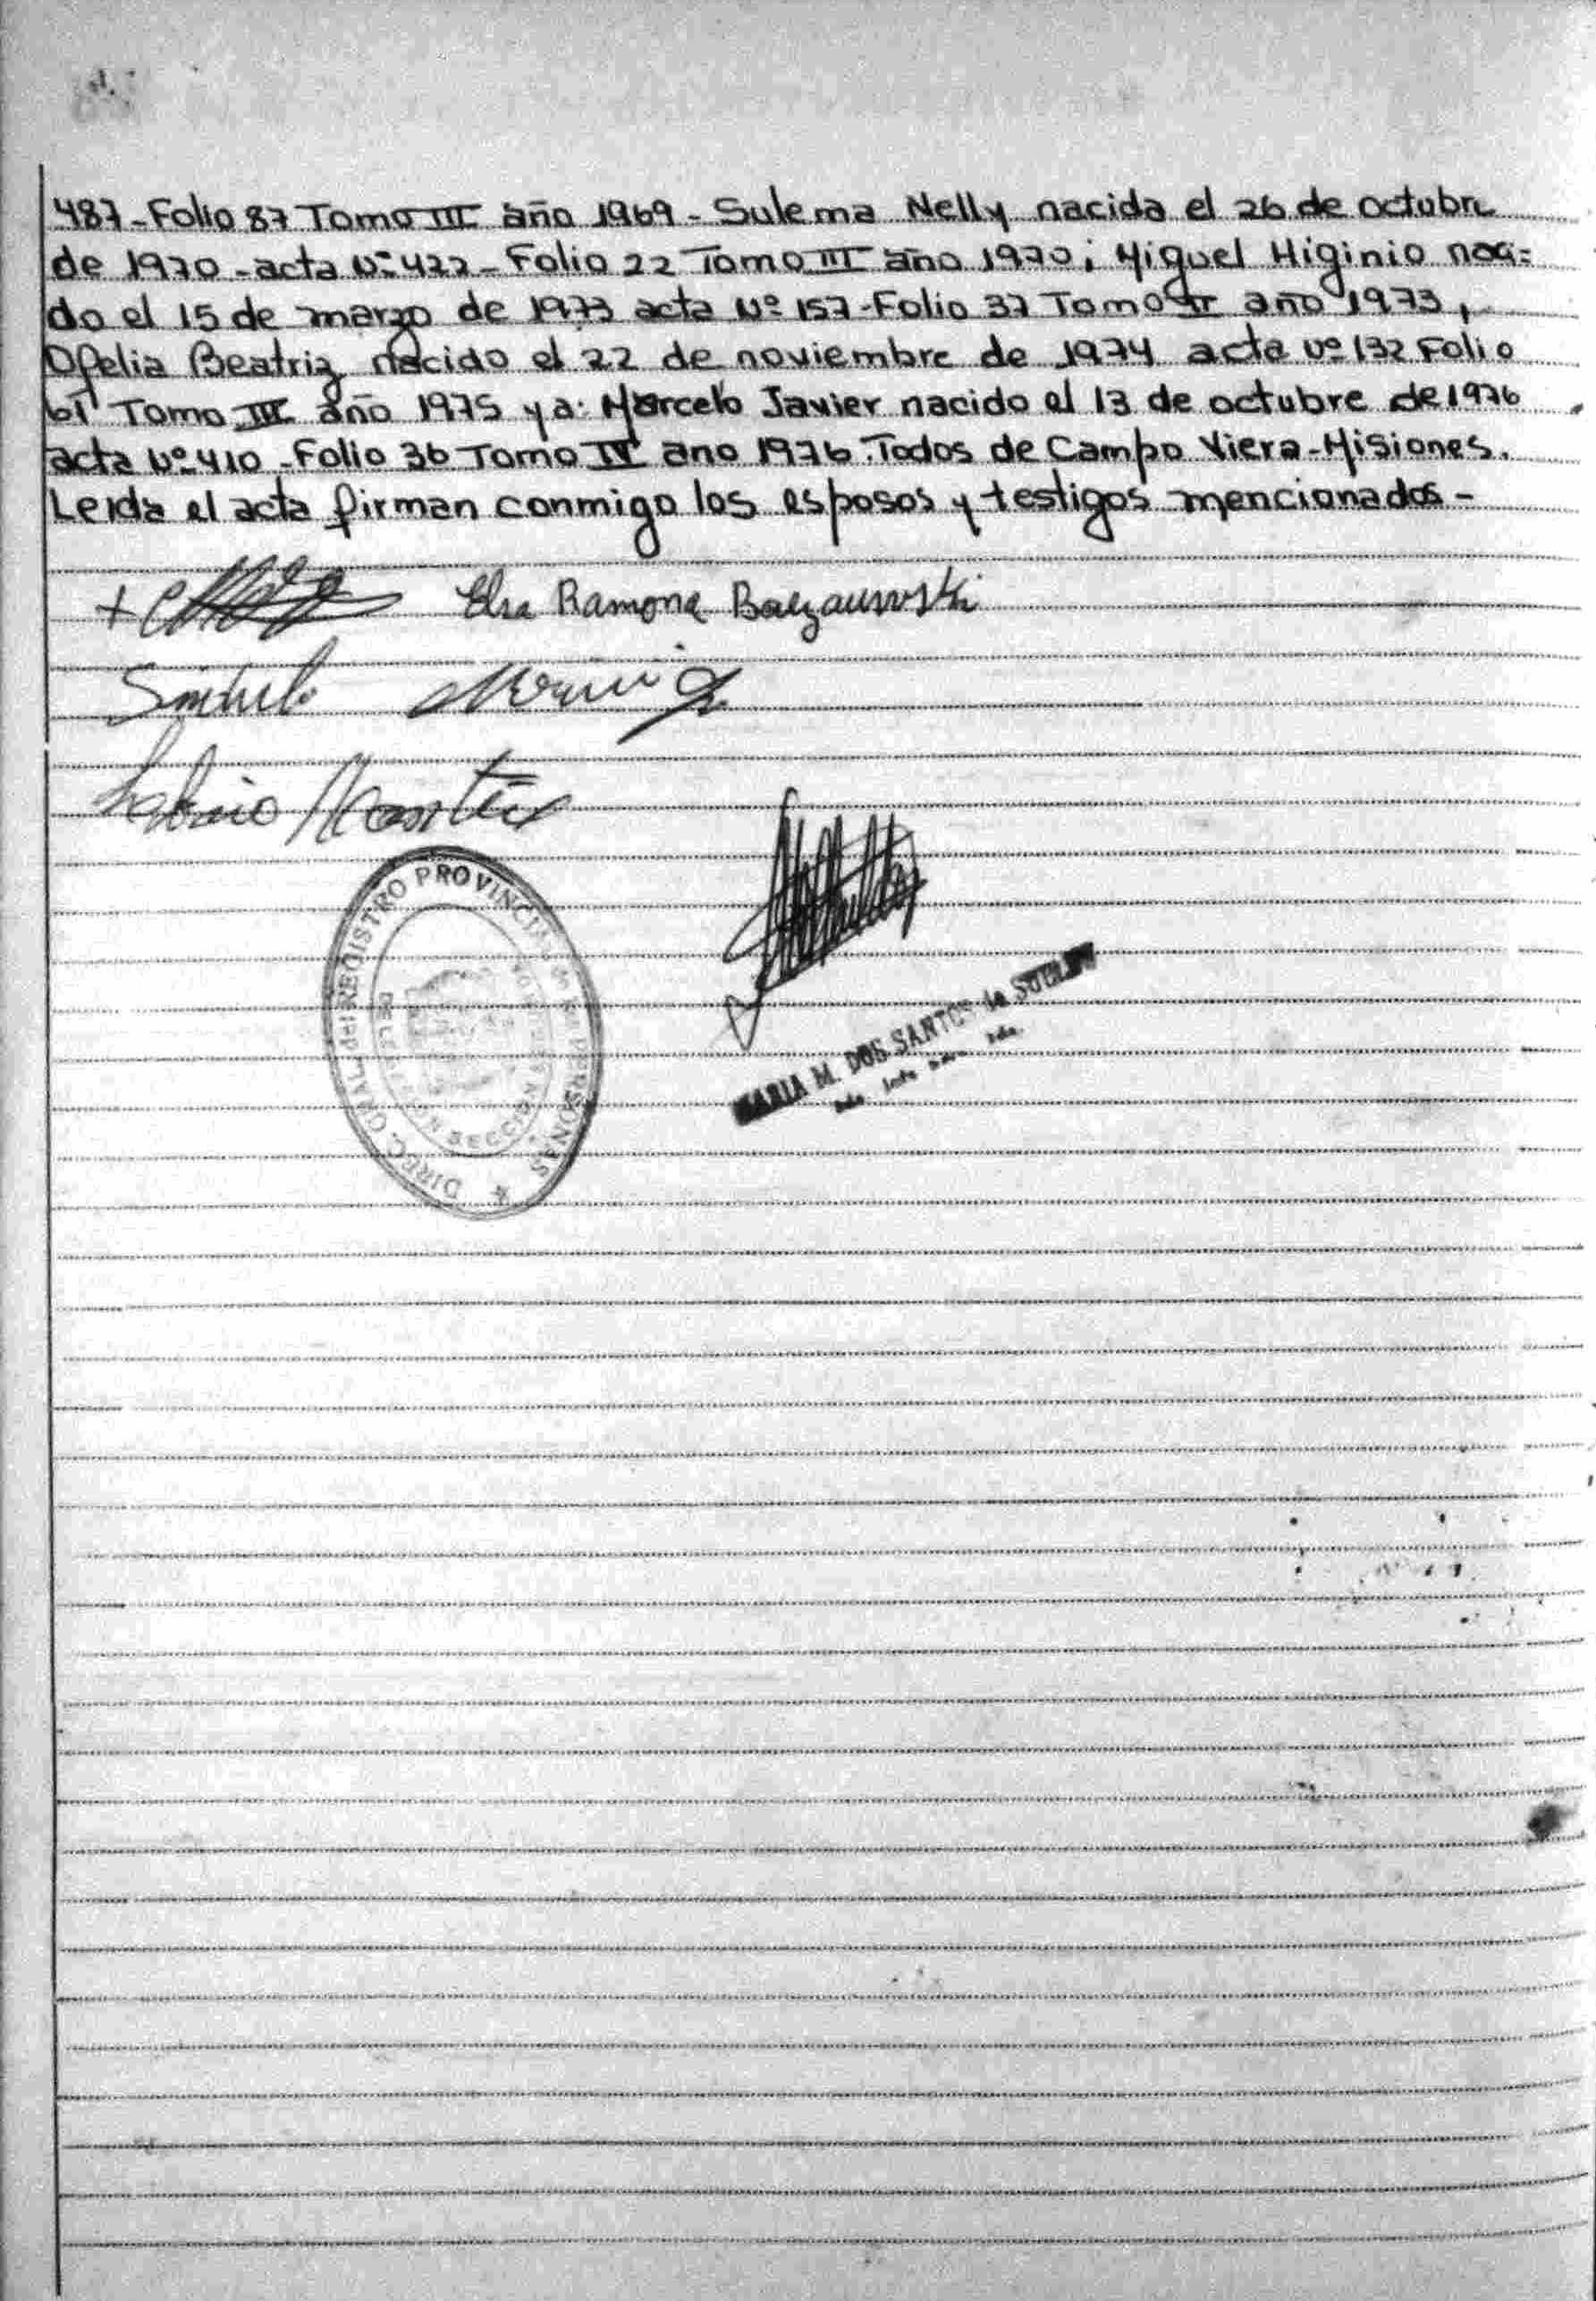 487-Folio 87 Tomo III año 1969 - Sulema Nelly nacida el 26 de octubre
de 1970 - acta Nº 422 - Folio 22 Tomo III año 1970; Miguel Higinio naci=
do el 15 de marzo de 1973 acta Nº 157-Folio 37 Tomo II año 1973,
Ofelia Beatriz nacido el 22 de noviembre de 1974 acta Nº 132 Folio
Tomo III año 1975 y a: Marcelo Javier nacido el 13 de octubre de 1976
acta Nº 410 - Folio 36 Tomo IV ano 1976. Todos de Campo Viera-Misiones.
Leida el acta firman conmigo los esposos y testigos mencionados -
Elsa Ramona
DIREC. GRAL. del REGISTRO PROVINCIAL de las PERSONAS
DELEGACION SECCIONAL
MARIA M. DOS SANTOS de